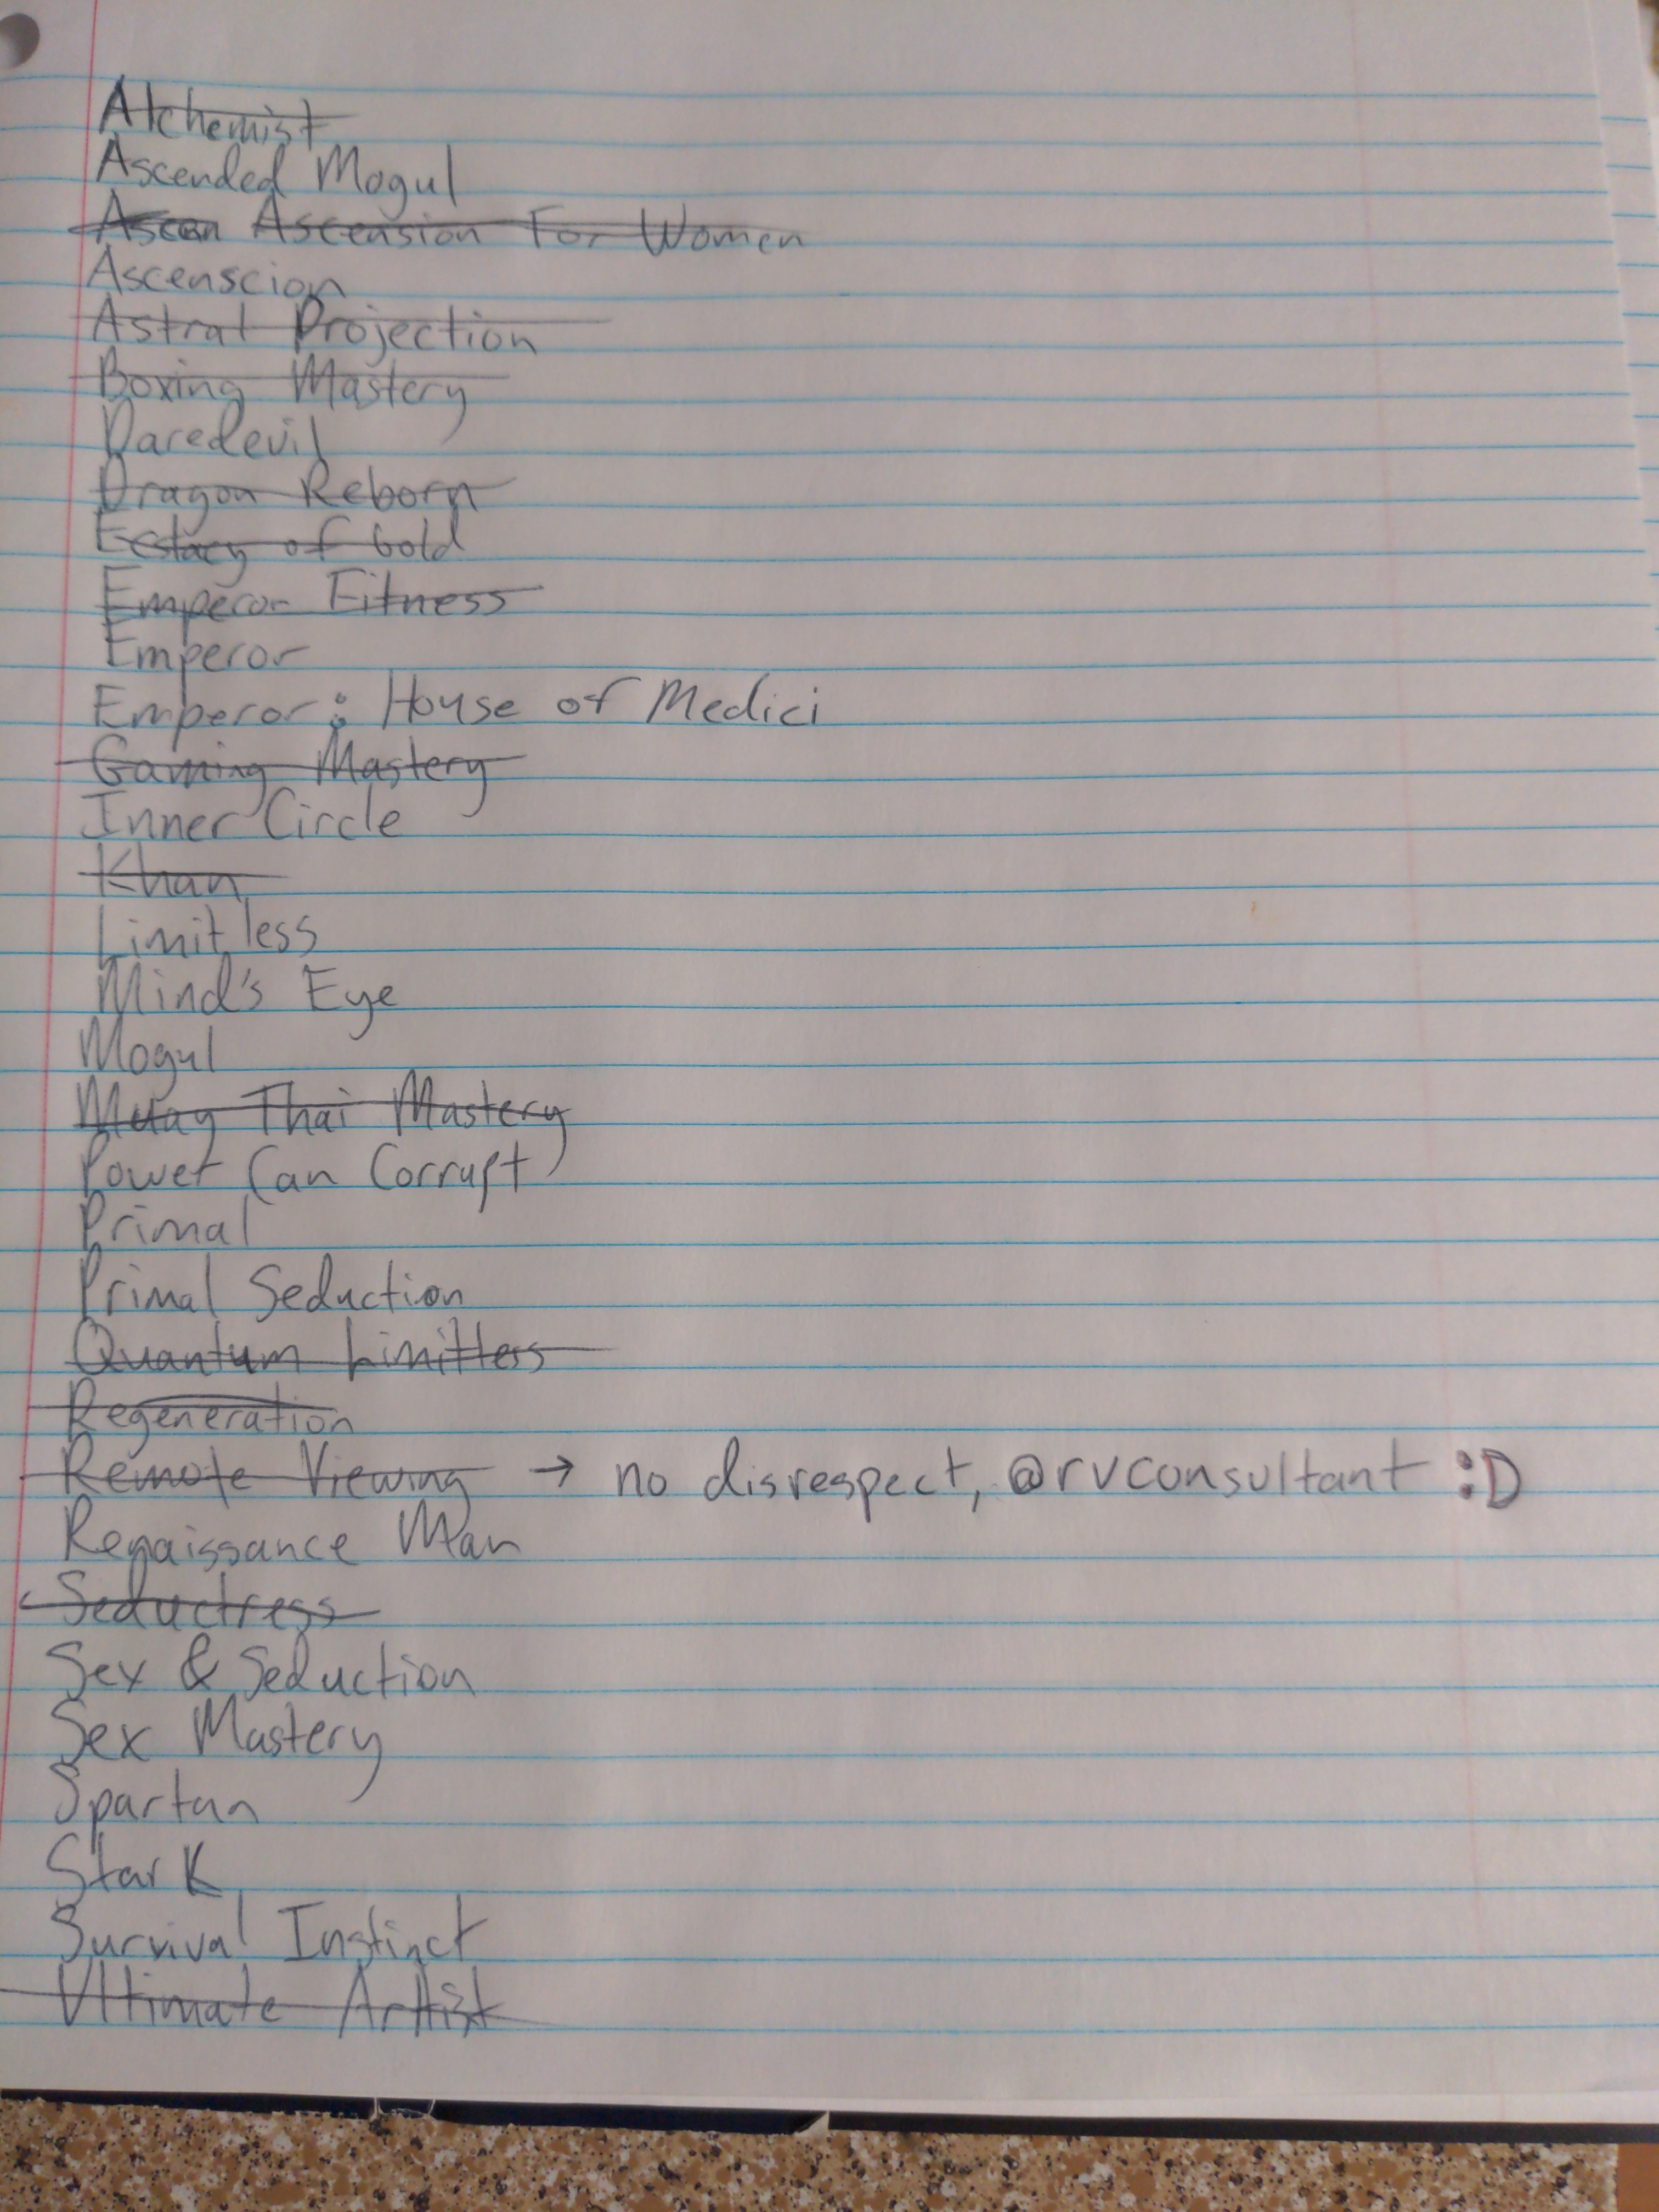 Alchemist
Ascended Mogul
Ascen Ascension For Women
Ascenscion
Astral Projection
Boxing Mastery
Daredevil
Dragon Reborn
Ecstacy of Gold
Emperor Fitness
Emperor
Emperor: House of Medici
Gaming Mastery
Inner Circle
Khan
Limitless
Mind's Eye
Mogul
Muay Thai Mastery
Power Can Corrupt
Primal
Primal Seduction
Quantum Limitless
Regeneration
Remote Viewing → no disrespect, @rvconsultant :D
Renaissance Man
Seductress
Sex & Seduction
Sex Mastery
Spartan
Stark
Survival Instinct
Ultimate Artist